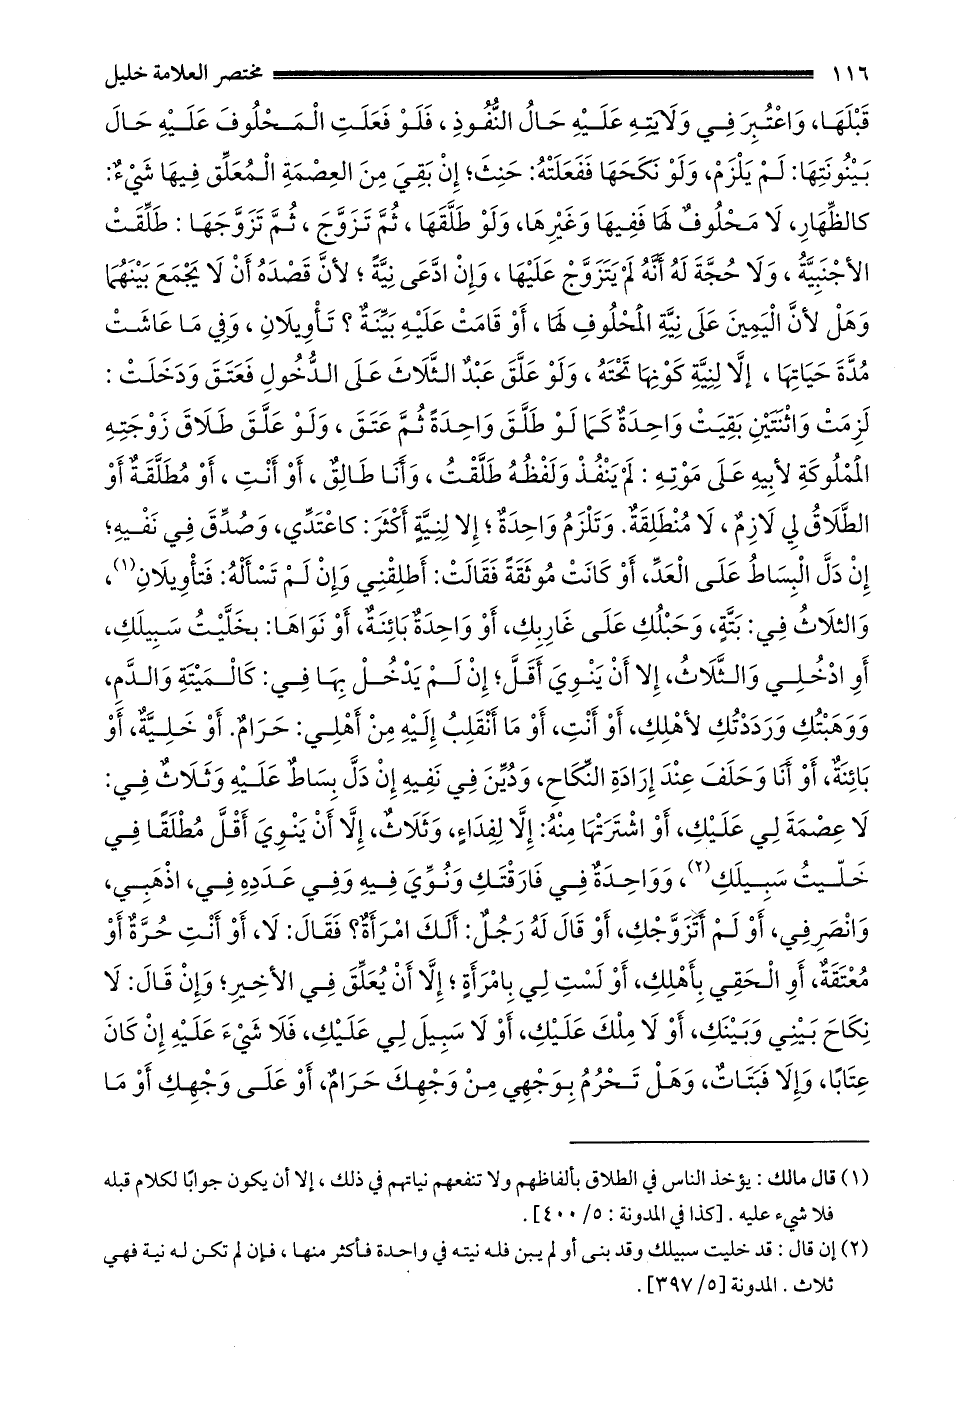 ١١٦ مختصر العلامة خليل
قَبْلَهَا، وَاعْتُبِرَ فِي وَلَايَتِهِ عَلَيْهِ حَالُ النُّفُوذِ ، فَلَوْ فَعَلَتِ الْمَحْلُوفَ عَلَيْهِ حَالَ
بَيْنُونَتِهَا: لَمْ يَلْزَمْ، وَلَوْ نَكَحَهَا فَفَعَلَتْهُ: حَنِثَ؛ إِنْ بَقِيَ مِنَ العِصْمَةِ الْمُعَلَّقِ فِيهَا شَيْءٌ:
كالظِّهَارِ، لَا مَحْلُوفٌ لَهَا فَفِيهَا وَغَيْرِهَا، وَلَوْ طَلَّقَهَا ، ثُمَّ تَزَوَّجَ ، ثُمَّ تَزَوَّجَهَا : طَلُقَتْ
الأجْنَبِيَّةُ ، وَلَا حُجَّةَ لَهُ أَنَّهُ لَمْ يَتَزَوَّجْ عَلَيْهَا ، وَإِنْ ادَّعَى نِيَّةً ؛ لأنَّ قَصْدَهُ أَنْ لَا يَجْمَعَ بَيْنَهُمَا
وَهَلْ لأنَّ الْيَمِينَ عَلَى نِيَّةِ الْمَحْلُوفِ لَهَا ، أَوْ قَامَتْ عَلَيْهِ بَيِّنَةٌ ؟ تَأْوِيلَانِ ، وَفِي مَا عَاشَتْ
مُدَّةَ حَيَاتِهَا ، إلَّا لِنِيَّةِ كَوْنِهَا تَحْتَهُ ، وَلَوْ عَلَّقَ عَبْدٌ الثَّلَاثَ عَلَى الدُّخُولِ فَعَتَقَ وَدَخَلَتْ :
لَزِمَتْ وَاثْنَتَيْنِ بَقِيَتْ وَاحِدَةٌ كَمَا لَوْ طَلَّقَ وَاحِدَةً ثُمَّ عَتَقَ ، وَلَوْ عَلَّقَ طَلَاقَ زَوْجَتِهِ
الْمَمْلُوكَةِ لأبِيهِ عَلَى مَوْتِهِ : لَمْ يَنْفُذْ وَلَفْظُهُ طَلَّقْتُ ، وَأَنَا طَالِقٌ ، أَوْ أَنْتِ ، أَوْ مُطَلَّقَةٌ أَوْ
الطَّلَاقُ لِي لَازِمٌ ، لَا مُنْطَلِقَةٌ. وَتَلْزَمُ وَاحِدَةٌ ؛ إلا لِنِيَّةِ أَكْثَرَ: كاعْتَدِّي، وَصُدِّقَ فِي نَفْيِهِ؛
إِنْ دَلَّ الْبِسَاطُ عَلَى الْعَدِّ، أَوْ كَانَتْ مُوثَقَةً فَقَالَتْ: أَطلِقْنِي وَإِنْ لَمْ تَسْأَلْهُ: فَتأْوِيلَانِ(١)،
وَالثلَاثُ فِي: بَتَّةٍ، وَحَبْلُكِ عَلَى غَارِبِكِ، أَوْ وَاحِدَةٌ بَائِنَةٌ، أَوْ نَوَاهَا: بخَلَّيْتُ سَبِيلَكِ،
أَوِ ادْخُلِي وَالثَّلَاثُ، إلا أَنْ يَنْوِيَ أَقَلَّ؛ إِنْ لَمْ يَدْخُلْ بِهَا فِي: كَالْمَيْتَةِ وَالدَّمِ،
وَوَهَبْتُكِ وَرَدَدْتُكِ لأهْلِكِ، أَوْ أَنْتِ، أَوْ مَا أَنْقَلِبُ إِلَيْهِ مِنْ أَهْلِي: حَرَامٌ. أَوْ خَلِيَّةٌ، أَوْ
بَائِنَةٌ، أَوْ أَنَا وَحَلَفَ عِنْدَ إِرَادَةِ النِّكَاحِ، وَدُيِّنَ فِي نَفْيِهِ إِنْ دَلَّ بِسَاطٌ عَلَيْهِ وَثَلَاثٌ فِي:
لَا عِصْمَةَ لِي عَلَيْكِ، أَوْ اشْتَرَتْهَا مِنْهُ: إلَّا لِفِدَاءٍ، وَثَلَاثٌ، إلَّا أَنْ يَنْوِيَ أَقَلَّ مُطْلَقًا فِي
خَلَّيْتُ سَبِيلَكِ(٢)، وَوَاحِدَةٌ فِي فَارَقْتُكِ وَنُوِّيَ فِيهِ وَفِي عَدَدِهِ فِي، اذْهَبِي،
وَانْصَرِفِي، أَوْ لَمْ أَتَزَوَّجْكِ، أَوْ قَالَ لَهُ رَجُلٌ: أَلَكَ امْرَأَةٌ؟ فَقَالَ: لَا، أَوْ أَنْتِ حُرَّةٌ أَوْ
مُعْتَقَةٌ، أَوِ الْحَقِي بِأَهْلِكِ، أَوْ لَسْتِ لِي بِامْرَأَةٍ ؛ إلَّا أَنْ يُعَلِّقَ فِي الأخِيرِ؛ وَإِنْ قَالَ: لَا
نِكَاحَ بَيْنِي وَبَيْنَكِ، أَوْ لَا مِلْكَ عَلَيْكِ، أَوْ لَا سَبِيلَ لِي عَلَيْكِ، فَلَا شَيْءَ عَلَيْهِ إِنْ كَانَ
عِتَابًا، وَإِلا فَبَتَاتٌ، وَهَلْ تَحْرُمُ بِوَجْهِي مِنْ وَجْهِكَ حَرَامٌ، أَوْ عَلَى وَجْهِكِ أَوْ مَا
(١) قال مالك : يؤخذ الناس في الطلاق بألفاظهم ولا تنفعهم نياتهم في ذلك ، إلا أن يكون جوابًا لكلام قبله
فلا شيء عليه . [كذا في المدونة : ٥/ ٤٠٠] .
(٢) إن قال : قد خليت سبيلك وقد بنى أو لم يبن فله نيته في واحدة فأكثر منها ، فإن لم تكن له نية فهي
ثلاث . المدونة [٥/ ٣٩٧] .